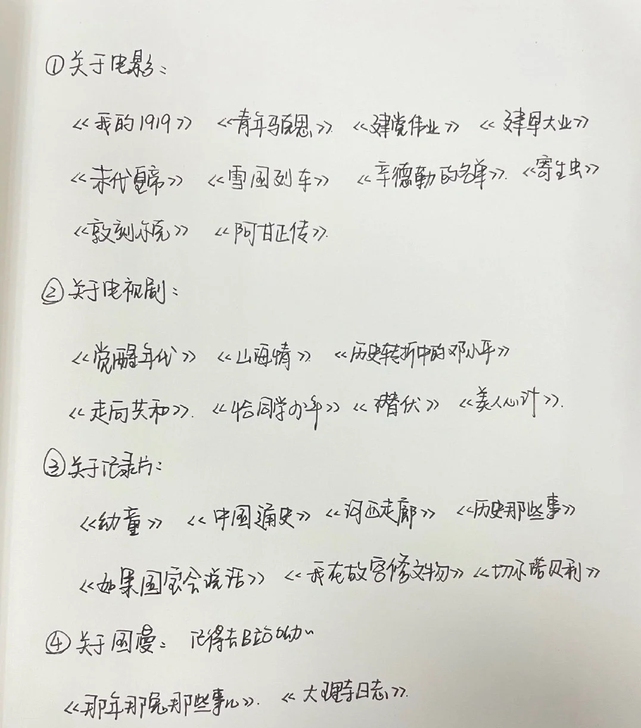 ①关于电影：
《我的1919》 《青年马克思》 《建党伟业》 《建军大业》
《末代皇帝》 《雪国列车》 《辛德勒的名单》. 《寄生虫》
《敦刻尔克》 《阿甘正传》.
②关于电视剧：
《觉醒年代》 《山海情》 《历史转折中的邓小平》
《走向共和》. 《恰同学少年》 《潜伏》 《美人心计》.
③关于记录片：
《幼童》 《中国通史》 《河西走廊》 《历史那些事》
《如果国宝会说话》 《我在故宫修文物》 《切尔诺贝利》
④关于国漫： 记得去B站
《那年那兔那些事儿》. 《大理寺日志》.